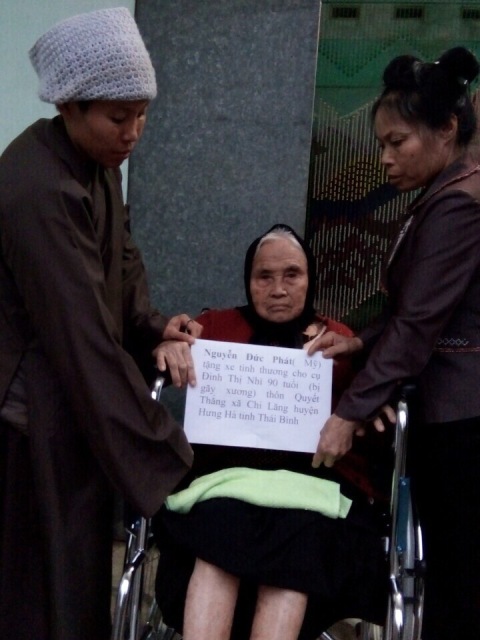 Nguyễn Đức Phát( Mỹ)
tặng xe tình thương cho cụ
Đinh Thị Nhi 90 tuổi (bị
gãy xương) thôn Quyết
Thắng xã Chi Lăng huyện
Hưng Hà tỉnh Thái Bình